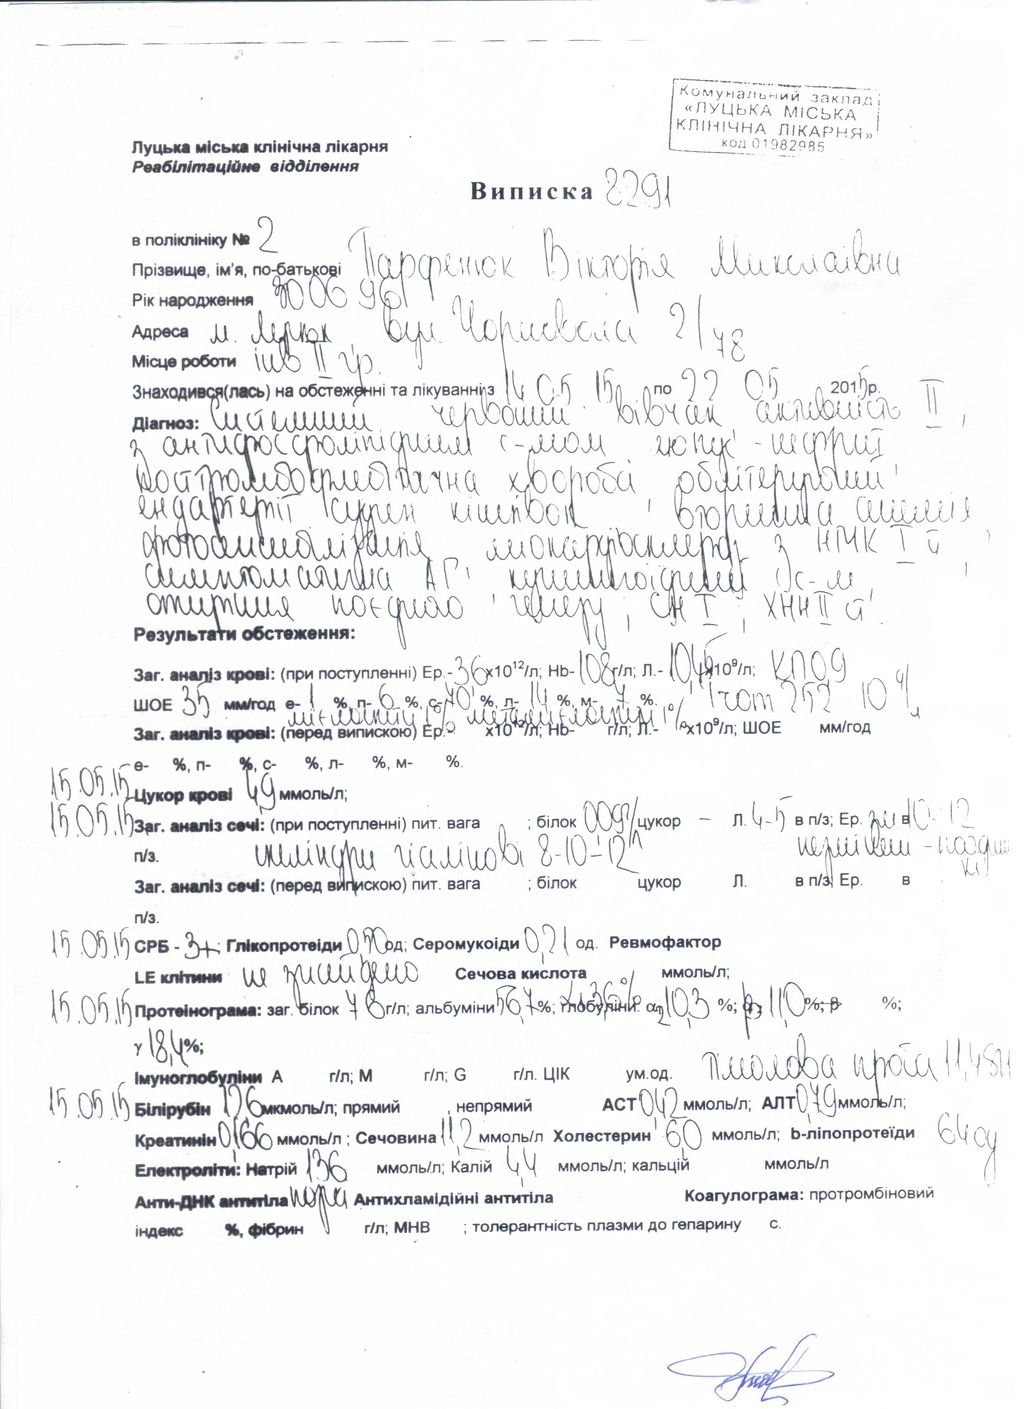 Комунальний заклад
«ЛУЦЬКА МІСЬКА
КЛІНІЧНА ЛІКАРНЯ»
код 01982985
Луцька міська клінічна лікарня
Реабілітаційне відділення
Виписка 8291
в поліклініку № 2
Прізвище, ім'я, по-батькові Парфенюк Вікторія Миколаївна
Рік народження 30 06 96
Адреса м. Луцьк вул. Чорновола 2/78
Місце роботи інв II гр.
Знаходився(лась) на обстеженні та лікуванні з 14 05 15р по 22 05 2015р.
Діагноз: Системний червоний вівчак активність II,
з антифосфоліпідним с-мом люпус-нефрит
хвороба облітеруючий
ендартеріїт судин кінцівок, вторинна анемія,
фотосенсибілізація, міокардіосклероз з НМК I ст,
симптоматична АГ, кушингоїдний с-м,
ожиріння поєднаного генезу, СН I, ХНН II ст.
Результати обстеження:
Заг. аналіз крові: (при поступленні) Ер.- 36 х10¹²/л; Hb- 108 г/л; Л.- 104 х10⁹/л; КП 09
ШОЕ 35 мм/год е- 1 %, п- 6 %, с- 70 %, л- 14 %, м- 7 %. 252 10⁹/л
мієлоцити 1% метамієлоцити 1%
Заг. аналіз крові: (перед випискою) Ер.- х10¹²/л; Hb- г/л; Л.- х10⁹/л; ШОЕ мм/год
е- %, п- %, с- %, л- %, м- %.
15.05.15 Цукор крові 4,9 ммоль/л;
15.05.15 Заг. аналіз сечі: (при поступленні) пит. вага ; білок 0,09 цукор – Л. 4-5 в п/з; Ер. в 10-12
п/з. циліндри гіалінові 8-10-12
Заг. аналіз сечі: (перед випискою) пит. вага ; білок цукор Л. в п/з; Ер. в
п/з.
15.05.15 СРБ - 3+; Глікопротеїди 0,50 од; Серомукоїди 0,21 од. Ревмофактор
LE клітини не знайдено Сечова кислота ммоль/л;
15.05.15 Протеінограма: заг. білок 78 г/л; альбуміни 56,7 %; глобуліни: α₁ 3,6% α₂ 10,3 %; β 11,0 %; β %;
γ 18,4 %;
Імуноглобуліни А г/л; М г/л; G г/л. ЦІК ум.од. Тимолова проба 11,48
15.05.15 Білірубін 12,6 мкмоль/л; прямий , непрямий АСТ 0,42 ммоль/л; АЛТ 0,79 ммоль/л;
Креатинін 0,166 ммоль/л ; Сечовина 11,2 ммоль/л Холестерин 6,0 ммоль/л; b-ліпопротеїди 64 од
Електроліти: Натрій 136 ммоль/л; Калій 4,4 ммоль/л; кальцій ммоль/л
Анти-ДНК антитіла норм Антихламідійні антитіла Коагулограма: протромбіновий
індекс %, фібрин г/л; МНВ ; толерантність плазми до гепарину с.